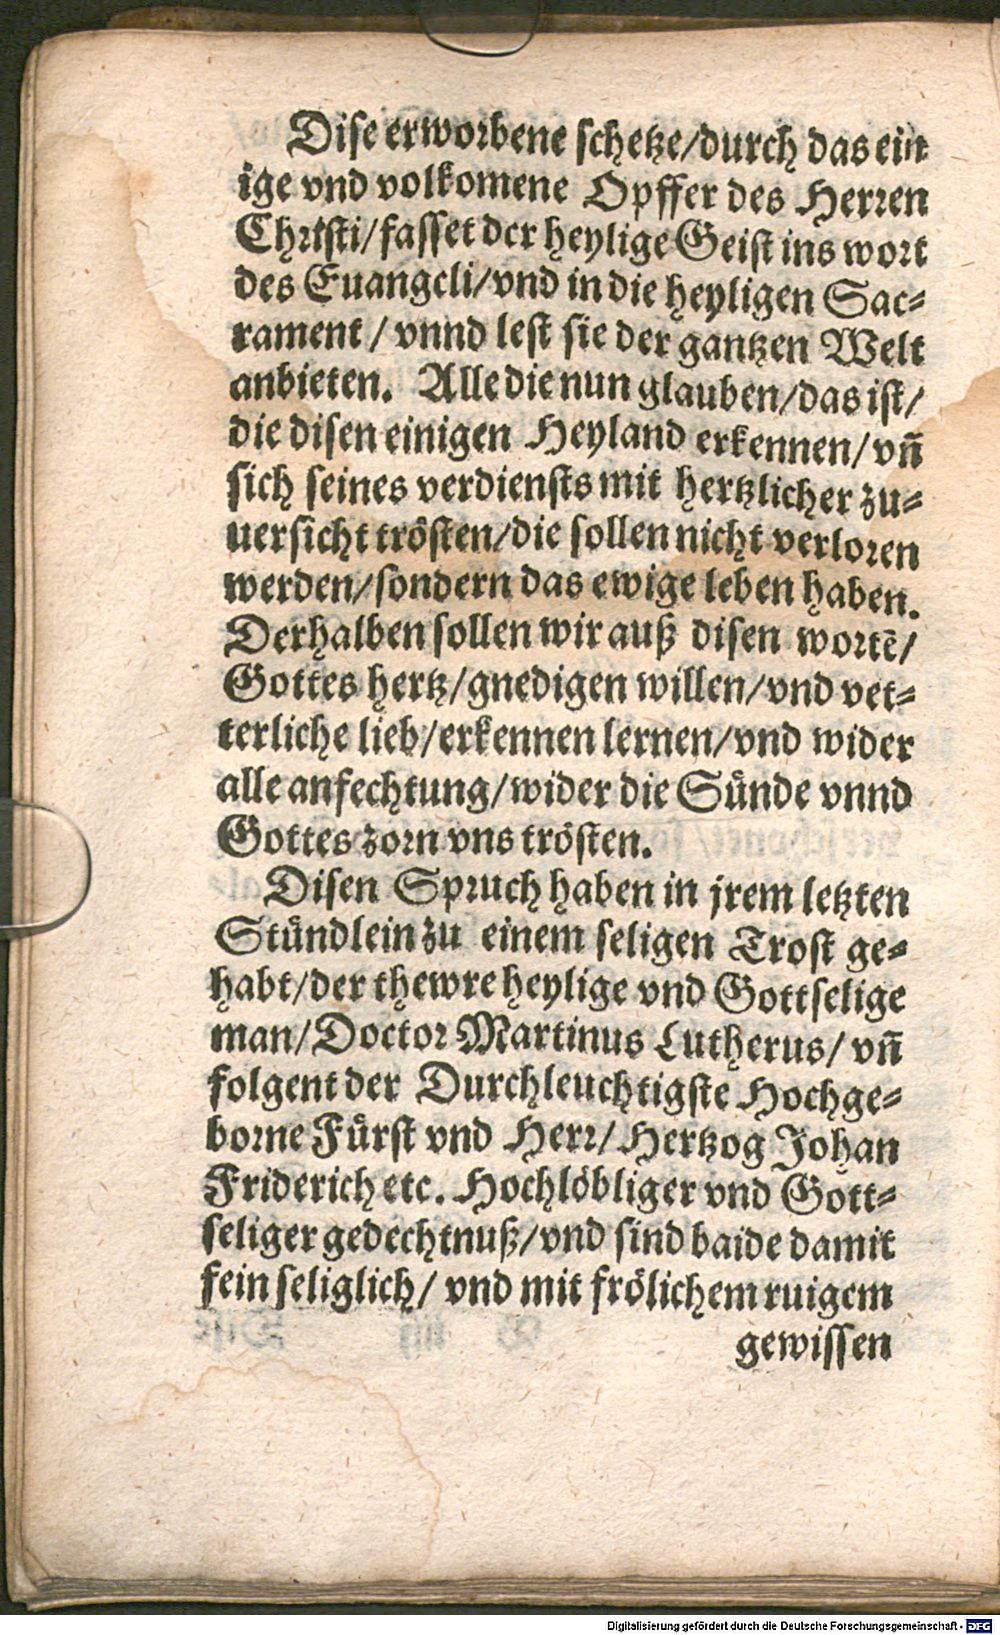 Dise erworbene schetze/durch das ein
ige vnd volkomene Opffer des Herren
Christi/fasset der heylige Geist ins wort
des Euangeli/vnd in die heyligen Sac⸗
rament / vnnd lest sie der gantzen Welt
anbieten. Alle die nun glauben/das ist/
die disen einigen Heyland erkennen/vn̄
sich seines verdiensts mit hertzlicher zu⸗
uersicht trösten/die sollen nicht verloren
werden/sondern das ewige leben haben.
Derhalben sollen wir auß disen wortē/
Gottes hertz/gnedigen willen/vnd vet⸗
terliche lieb/erkennen lernen/vnd wider
alle anfechtung/wider die Sünde vnnd
Gottes zorn vns trösten.
Disen Spruch haben in jrem letzten
Stündlein zu einem seligen Trost ge⸗
habt/der thewre heylige vnd Gottselige
man/Doctor Martinus Lutherus/ vn̄
folgent der Durchleuchtigste Hochge⸗
borne Fürst vnd Herr/ Hertzog Johan
Friderich etc. Hochlöbliger vnd Gott⸗
seliger gedechtnuß/vnd sind baide damit
fein seliglich/ vnd mit frölichem ruigem
gewissen
Digitalisierung gefördert durch die Deutsche Forschungsgemeinschaft - DFG